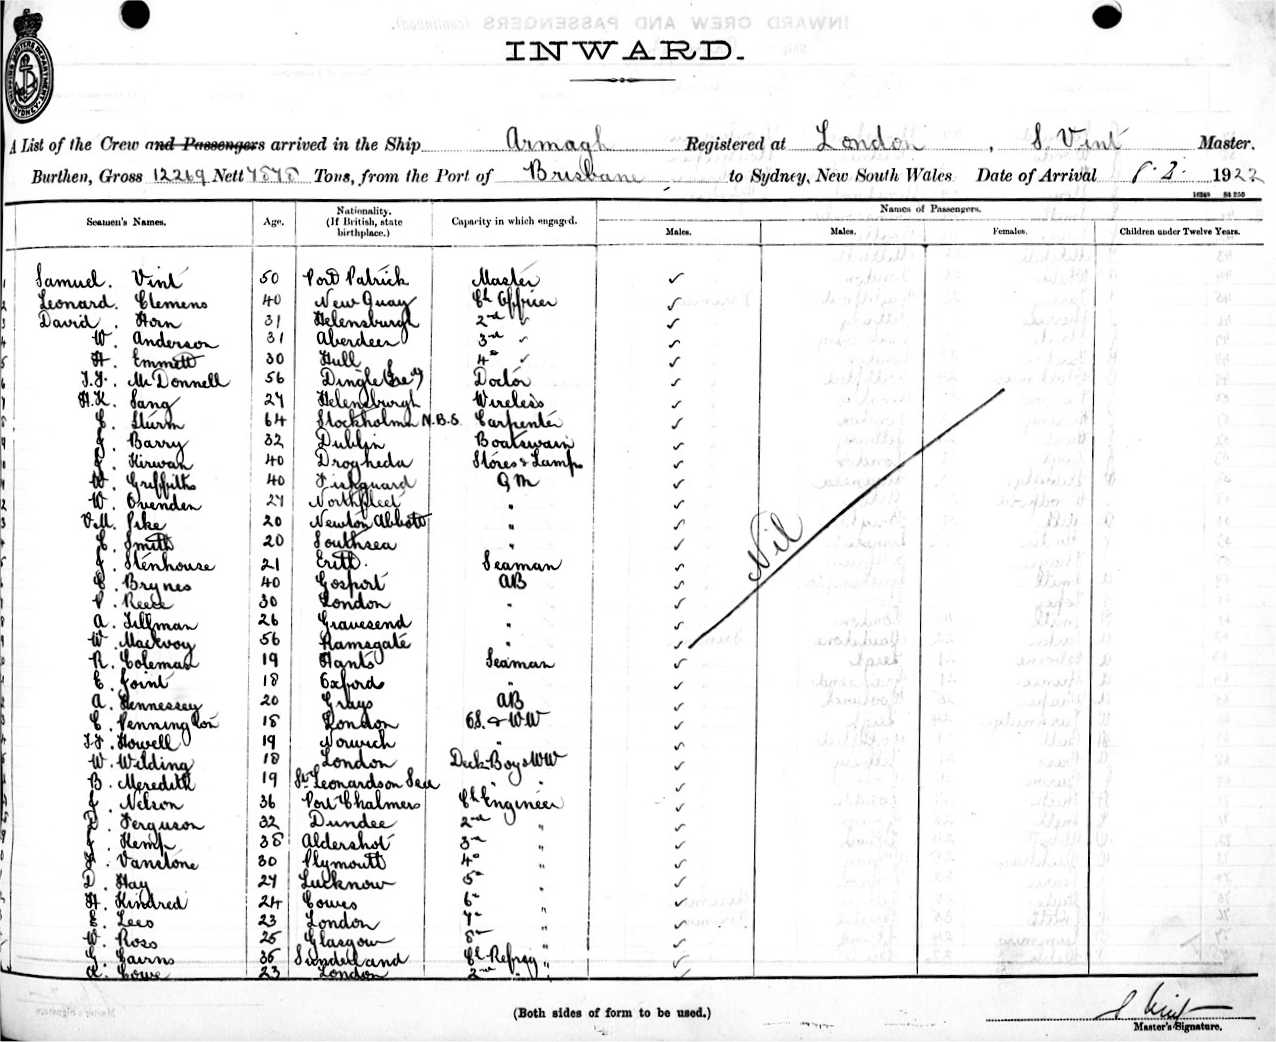 INWARD.
A List of the Crew and Passengers arrived in the Ship Armagh Registered at London, S. Vint Master.
Burthen, Gross 12269 Nett 7878 Tons, from the Port of Brisbane to Sydney, New South Wales Date of Arrival 8.2.1922
Names of Passengers.
Seamen's Names. Age. Nationality. (If British, state birthplace.) Capacity in which engaged. Males. Males. Females. Children under Twelve Years.
1 Samuel. Vint 50 Port Patrick Master ✓
2 Leonard. Clemens 40 New Quay Ch Officer ✓
3 David. Horn 31 Helensburgh 2nd ✓ ✓
4 W. Anderson 31 Aberdeen 3rd ✓ ✓
5 H. Emmett 30 Hull 4th ✓ ✓
6 McDonnell 56 Dingle Doctor ✓
7 H.K. Sang 27 Helensburgh Wireless ✓
8 Sturm 64 Stockholm N.B.S. Carpenter ✓
9 J. Barry 32 Dublin Boatswain ✓
J. Kirwan 40 Drogheda Stores & Lamps ✓
W. Griffiths 40 Fishguard QM ✓
W. Ovenden 27 Northfleet " ✓
V.M. Pike 20 Newton Abbott " ✓
Smith 20 Southsea " ✓
J. Stenhouse 21 Erith. Seaman ✓
Brynes 40 Gosport AB ✓
P. Reece 30 London " ✓
A. Tillman 26 Gravesend " ✓
W. Mackvoy 56 Ramsgate " ✓
R. Coleman 19 Hants Seaman ✓
Joint 18 Oxford " ✓
A. Hennessey 20 Grays AB ✓
Pennington 18 London O.S. & WW ✓
Howell 19 Norwich " ✓
W. Wilding 18 London Deck Boy & WW ✓
B. Meredith 19 St. Leonardson Sea " " ✓
J. Nelson 36 Port Chalmers Ch Engineer ✓
D. Ferguson 32 Dundee 2nd " ✓
J. Kemp 38 Aldershot 3rd " ✓
Vanstone 30 Plymouth 4th " ✓
D. Hay 27 Lucknow 5th " ✓
H. Kindred 24 Cowes 6th " ✓
E. Lees 23 London 7th " ✓
W. Ross 25 Glasgow 8th " ✓
G. Cairns 35 Sunderland Ch Refrig " ✓
A. Cowe 23 London 2nd " ✓
Nil
(Both sides of form to be used.)
S Vint
Master's Signature.